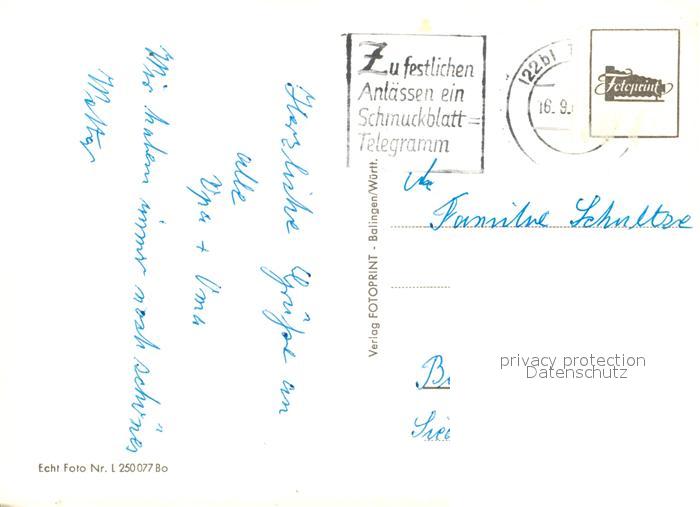 Zu festlichen
Anlässen ein
Schmuckblatt=
Telegramm
(22b)
16. 9.
Fotoprint
An
Familie Schultze
B
Sie
privacy protection
Datenschutz
Verlag FOTOPRINT - Balingen/Württ.
Herzliche Grüße an
alle
Opa + Oma
Wir haben immer noch schönes
Wetter
Echt Foto Nr. L 250 077 Bo